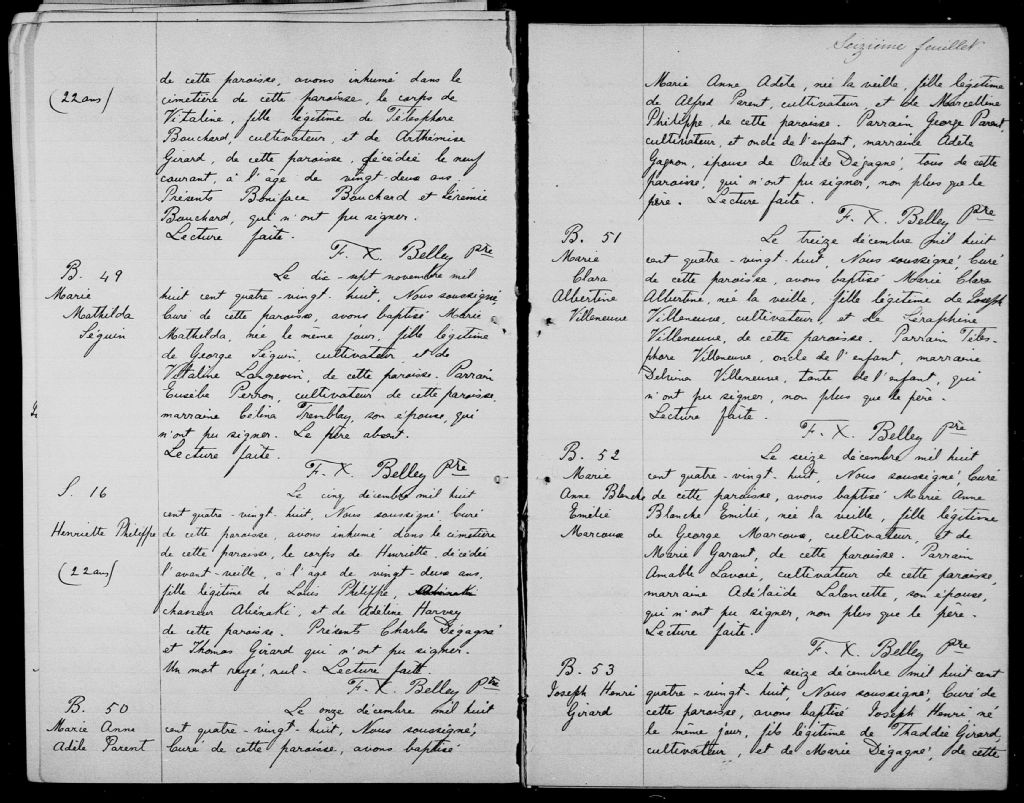 (22 ans)
de cette paroisse, avons inhumé dans le
cimetière de cette paroisse, le corps de
Vitaline, fille légitime de Télesphore
Bouchard, cultivateur, et de Arthémise
Girard, de cette paroisse, décédée le neuf
courant, à l'âge de vingt-deux ans.
Présents Boniface Bouchard et Jérémie
Bouchard, qui n'ont pu signer.
Lecture faite.
F. X. Belley Ptre
B. 49
Marie
Mathilda
Séguin
Le dix-sept novembre mil
huit cent quatre-vingt-huit, Nous soussigné,
Curé de cette paroisse, avons baptisé Marie
Mathilda, née le même jour, fille légitime
de George Séguin, cultivateur et de
Vitaline Langevin, de cette paroisse. Parrain
Eusèbe Perron, cultivateur de cette paroisse,
marraine Célina Tremblay, son épouse, qui
n'ont pu signer. Le père absent.
Lecture faite.
F. X. Belley Ptre
S. 16
Henriette Philippe
(22 ans)
Le cinq décembre mil huit
cent quatre-vingt-huit, Nous soussigné, Curé
de cette paroisse, avons inhumé dans le cimetière
de cette paroisse, le corps de Henriette, décédée
l'avant-veille, à l'âge de vingt-deux ans,
fille légitime de Louis Philippe,
chasseur Abénaki, et de Adéline Harvey
de cette paroisse. Présents Charles Dégagné
et Thomas Girard qui n'ont pu signer.
Un mot rayé, nul. Lecture faite
F. X. Belley Ptre
B. 50
Marie Anne
Adèle Parent
Le onze décembre mil huit
cent quatre-vingt-huit, Nous soussigné,
Curé de cette paroisse, avons baptisé
Seizième feuillet
Marie Anne Adèle, née la veille, fille légitime
de Alfred Parent, cultivateur, et de Marcelline
Philippe, de cette paroisse. Parrain George Parent,
cultivateur, et oncle de l'enfant, marraine Adèle
Gagnon, épouse de Ovilde Dégagné, tous de cette
paroisse, qui n'ont pu signer, non plus que le
père. Lecture faite.
F. X. Belley Ptre
B. 51
Marie
Clara
Albertine
Villeneuve
Le treize décembre mil huit
cent quatre-vingt-huit, Nous soussigné Curé
de cette paroisse, avons baptisé Marie Clara
Albertine, née la veille, fille légitime de Joseph
Villeneuve, cultivateur, et de Séraphine
Villeneuve, de cette paroisse. Parrain Téles-
phore Villeneuve, oncle de l'enfant, marraine
Delvina Villeneuve, tante de l'enfant, qui
n'ont pu signer, non plus que le père.
Lecture faite.
F. X. Belley Ptre
B. 52
Marie
Anne Blanche
Emélie
Marcoux
Le seize décembre mil huit
cent quatre-vingt-huit, Nous soussigné, Curé
de cette paroisse, avons baptisé Marie Anne
Blanche Emélie, née la veille, fille légitime
de George Marcoux, cultivateur, et de
Marie Garant, de cette paroisse. Parrain
Amable Lavoie, cultivateur de cette paroisse,
marraine Adélaïde Lalancette, son épouse,
qui n'ont pu signer, non plus que le père.
Lecture faite.
F. X. Belley Ptre
B. 53
Joseph Henri
Girard
Le seize décembre mil huit cent
quatre-vingt-huit, Nous soussigné, Curé de
cette paroisse, avons baptisé Joseph Henri né
le même jour, fils légitime de Thaddée Girard,
cultivateur, et de Marie Dégagné, de cette